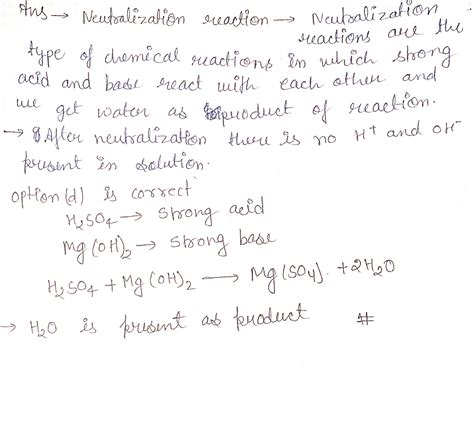 Ans → Neutralization reaction → Neutralization
reactions are the
type of chemical reactions in which strong
acid and base react with each other and
we get water as product of reaction.
→ After neutralization there is no H⁺ and OH⁻
present in solution.
option (d) is correct
H₂SO₄ → strong acid
Mg(OH)₂ → strong base
H₂SO₄ + Mg(OH)₂ → Mg(SO₄). + 2H₂O
→ H₂O is present as product #